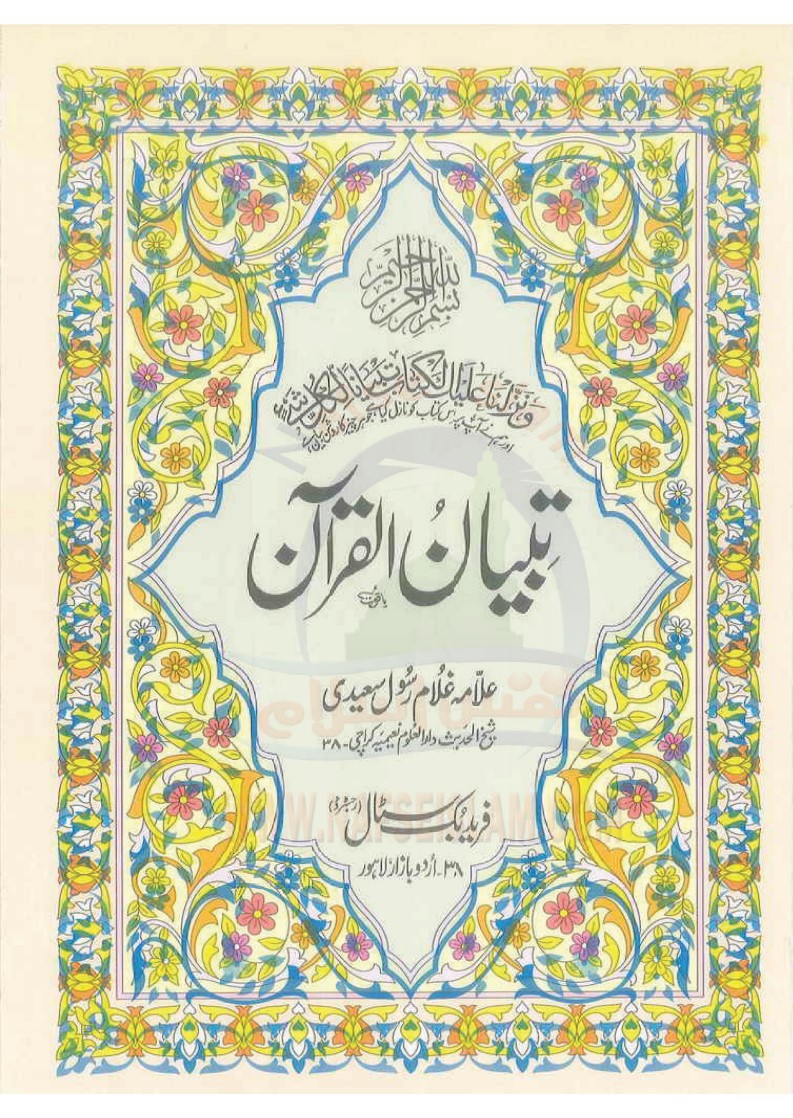 بسم الله الرحمن الرحيم
ونزلنا عليك الكتاب تبيانا لكل شيء
اور ہم نے آپ پر اس کتاب کو نازل کیا ہے جو ہر چیز کا روشن بیان ہے
تِبیانُ القرآن
علّامہ غلام رسُول سعیدی
شیخ الحدیث دارالعلوم نعیمیہ کراچی۔۳۸
فرید بُک سٹال (رجسٹرڈ)
۳۸۔اُردو بازار لاہور
نفس اسلام
WWW.NAFSEISLAM.COM